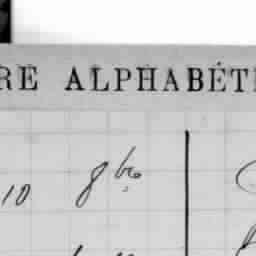 RE ALPHABÉT
10 8bre